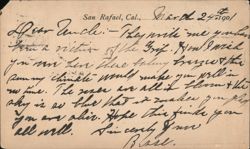 San Rafael, Cal., March 25th 1901
Dear Uncle:- They write me you have
been a victim of the Grip. How I wish
you were here these balmy breezes & the
sunny climate would make you well in
no time. The roses are all in bloom & the
sky is so blue that it makes you feel
you are alive. Hope this finds you
all well. Sincerely